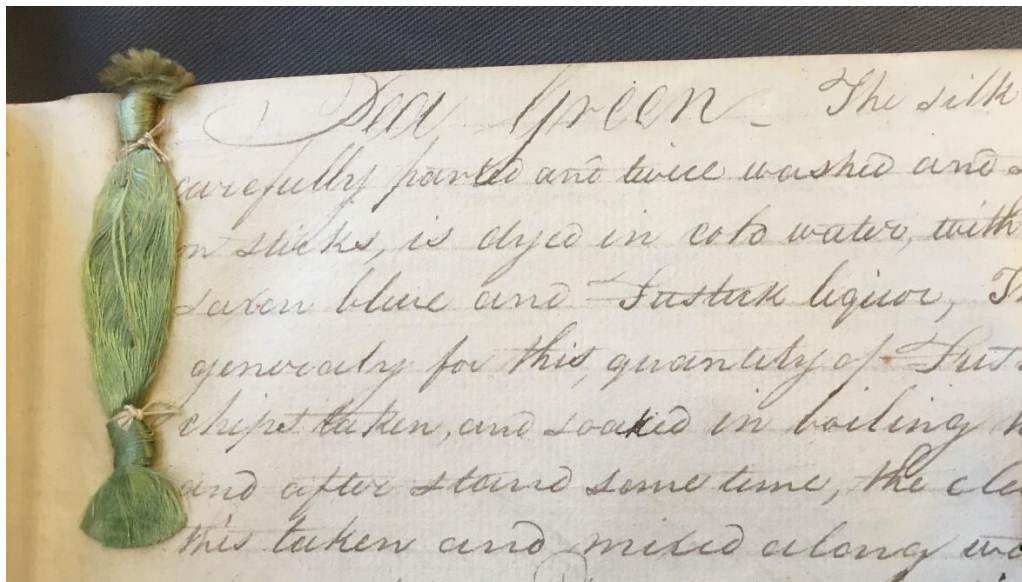 Sea Green - The silk
carefully parted and twice washed and
on sticks, is dyed in cold water, with
saxon blue and Fustick liquor,
generaly for this, quantity of
chips taken, and soaked in boiling
and after stand some time, the
this taken and mixed along